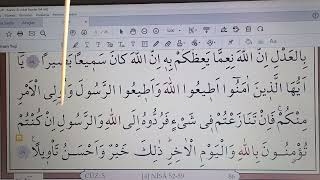 بِالْعَدْلِ اِنَّ اللّٰهَ نِعِمَّا يَعِظُكُمْ بِه۪ اِنَّ اللّٰهَ كَانَ سَم۪يعًا بَص۪يرًا يَٓا
اَيُّهَا الَّذ۪ينَ اٰمَنُٓوا اَط۪يعُوا اللّٰهَ وَاَط۪يعُوا الرَّسُولَ وَاُو۬لِي الْاَمْرِ
مِنْكُمْ فَاِنْ تَنَازَعْتُمْ ف۪ي شَيْءٍ فَرُدُّوهُ اِلَى اللّٰهِ وَالرَّسُولِ اِنْ كُنْتُمْ
تُؤْمِنُونَ بِاللّٰهِ وَالْيَوْمِ الْاٰخِرِ ذٰلِكَ خَيْرٌ وَاَحْسَنُ تَأْو۪يلًا
CÜZ:5 (4) NİSÂ 52-59 86